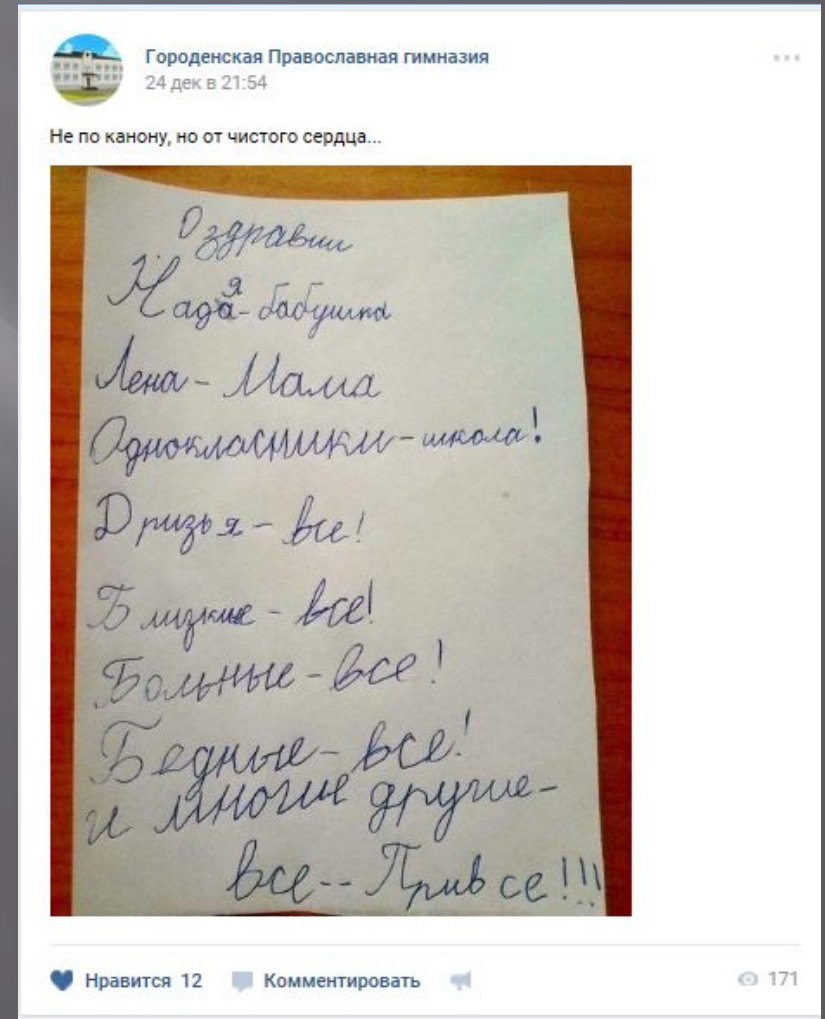 Городенская Православная гимназия
24 дек в 21:54
Не по канону, но от чистого сердца...
Оздравии
Надя - бабушка
Лена - Мама
Однокласники - школа!
Дризья - все!
Близкие - все!
Больные - все!
Бедные - все!
и многие другие -
все -- Привсе!!!
Нравится 12 Комментировать 171